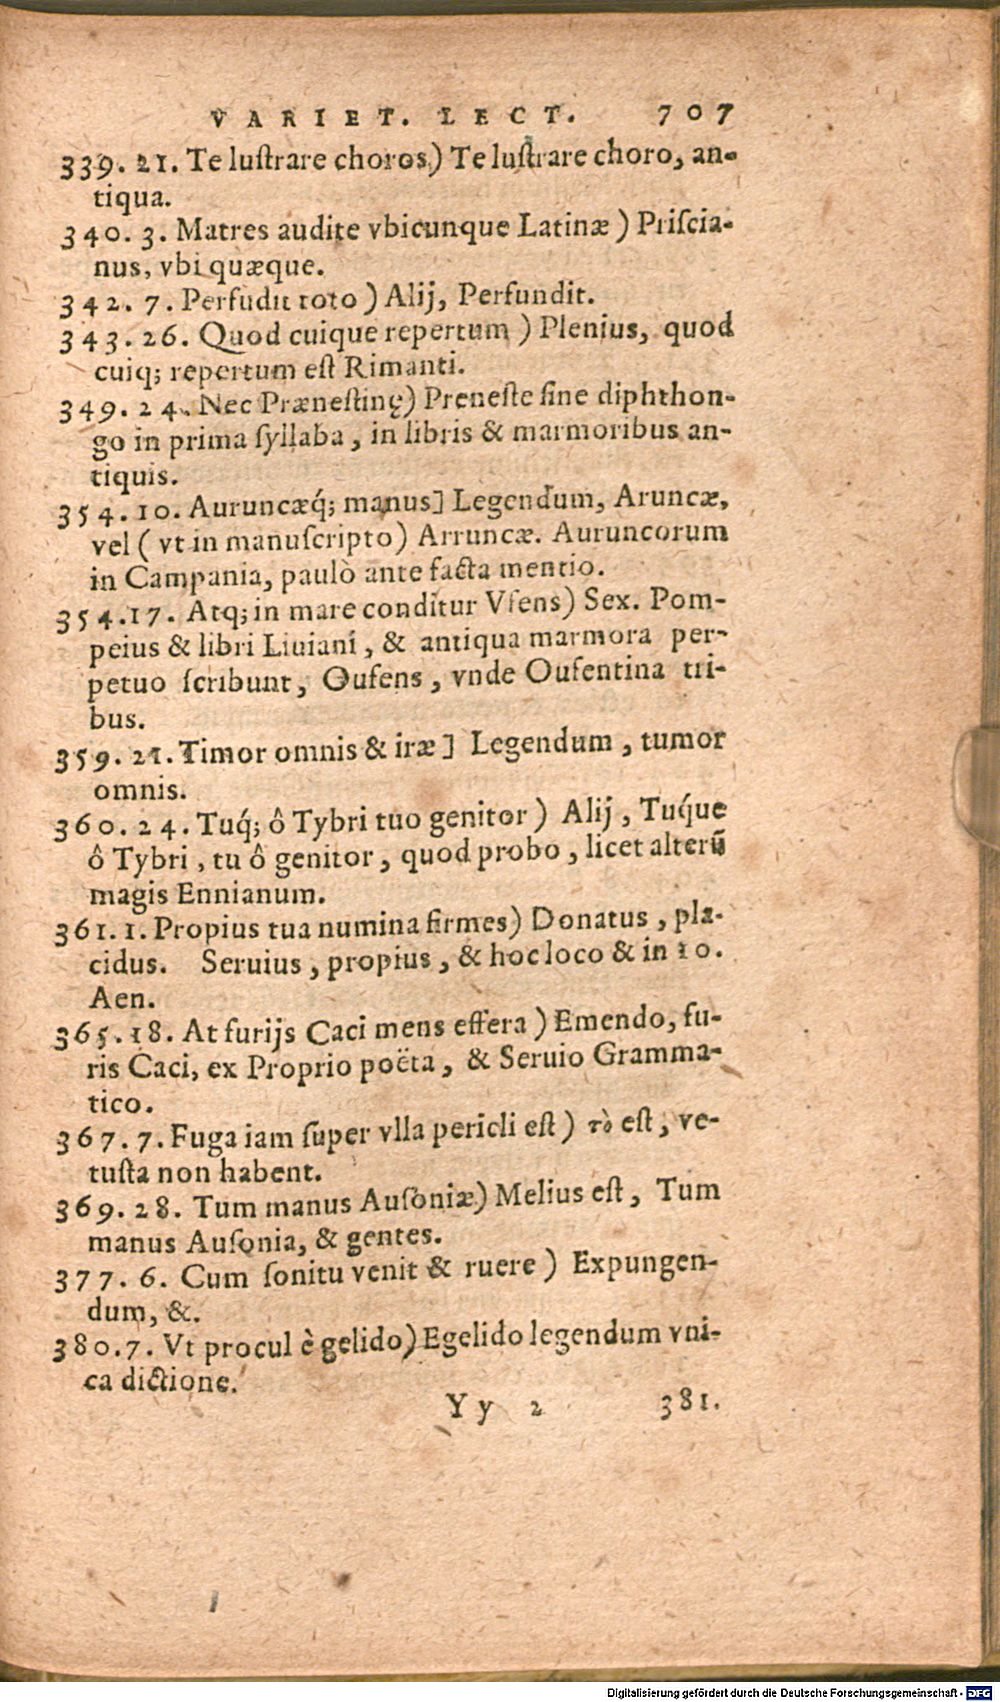 VARIET. LECT. 707
339. 21. Te luſtrare choros) Te luſtrare choro, an-
tiqua.
340. 3. Matres audite vbicunque Latinæ) Priſcia-
nus, vbi quæque.
342. 7. Perfudit toto) Alij, Perfundit.
343. 26. Quod cuique repertum) Plenius, quod
cuiq; repertum eſt Rimanti.
349. 24. Nec Præneſtinę) Preneſte ſine diphthon-
go in prima ſyllaba, in libris & marmoribus an-
tiquis.
354. 10. Auruncæq́; manus] Legendum, Aruncæ,
vel (vt in manuſcripto) Arruncæ. Auruncorum
in Campania, paulò ante facta mentio.
354. 17. Atq; in mare conditur Vſens) Sex. Pom-
peius & libri Liuiani, & antiqua marmora per-
petuo ſcribunt, Ouſens, vnde Ouſentina tri-
bus.
359. 21. Timor omnis & iræ] Legendum, tumor
omnis.
360. 24. Tuq́; ô Tybri tuo genitor) Alij, Tuq́ue
ô Tybri, tu ô genitor, quod probo, licet alterū
magis Ennianum.
361. 1. Propius tua numina firmes) Donatus, pla-
cidus. Seruius, propius, & hoc loco & in 10.
Aen.
365. 18. At furijs Caci mens effera) Emendo, fu-
ris Caci, ex Proprio poëta, & Seruio Gramma-
tico.
367. 7. Fuga iam ſuper vlla pericli eſt) τὸ eſt, ve-
tuſta non habent.
369. 28. Tum manus Auſoniæ) Melius eſt, Tum
manus Auſonia, & gentes.
377. 6. Cum ſonitu venit & ruere) Expungen-
dum, &.
380. 7. Vt procul è gelido) Egelido legendum vni-
ca dictione.
Yy 2 381.
Digitalisierung gefördert durch die Deutsche Forschungsgemeinschaft - DFG